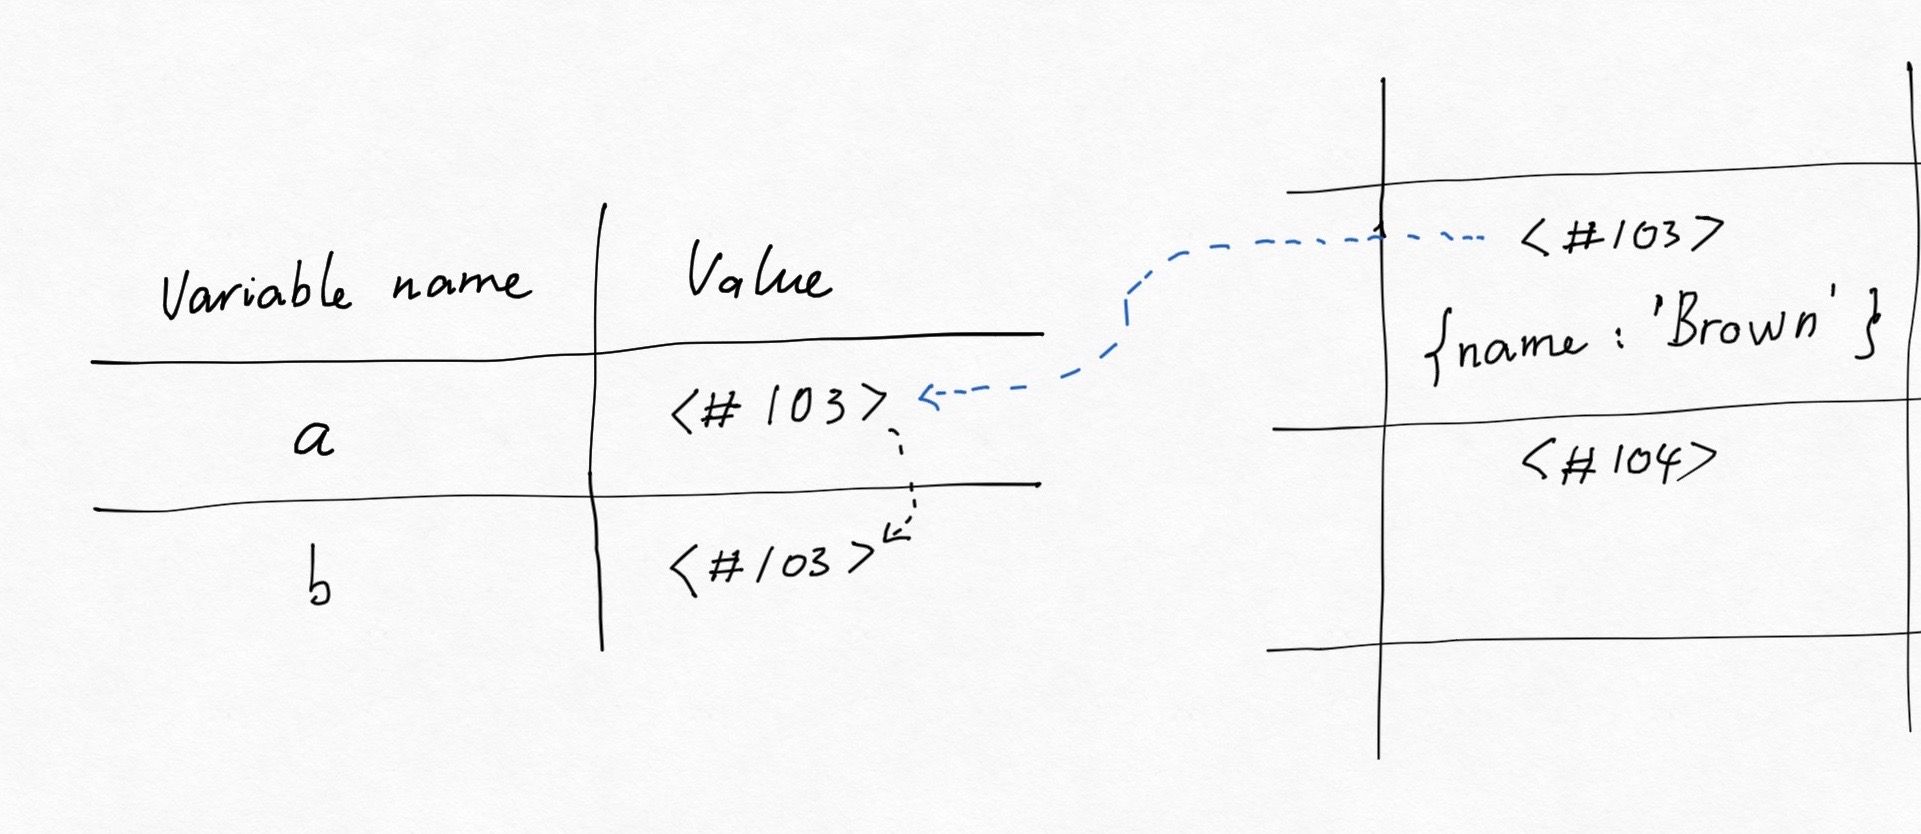 Variable name
Value
a
<# 103>
b
<#103>
<#103>
{name : 'Brown'}
<#104>